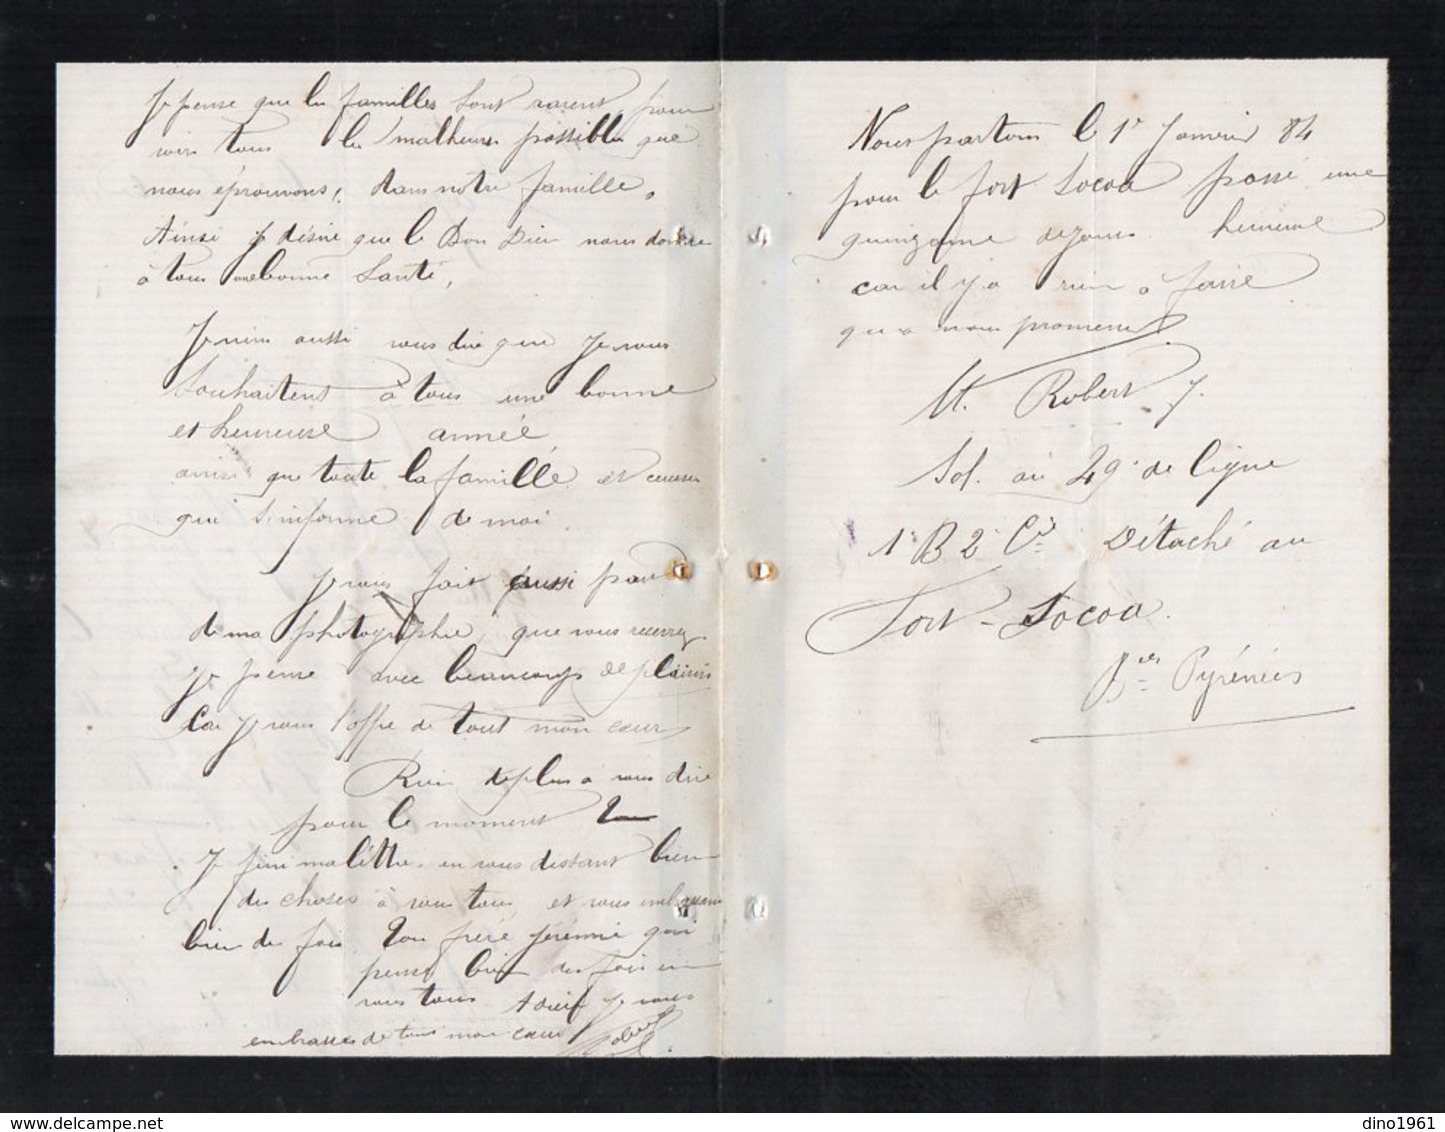 Je pense que les familles sont rarent pour
voir tous les malheurs possibles que
nous éprouvons, dans notre famille,
Ainsi je désire que le Bon Dieu nous donne
à tous une bonne Santé,
Je viens aussi vous dire que je vous
Souhaitent à tous une bonne
et heureuse année
ainsi que toute la famille et ceuse
qui s'informe de moi.
Je vous fait aussi part
de ma photographie, que vous recevrez
je pense avec beaucoups de plaisirs
Car je vous l'offre de tout mon cœur
Rien de plus à vous dire
pour le moment
Je fini ma lettre en vous disant bien
des choses à vous tous et vous embrassan
bien des fois. Ton frére Jérémie qui
pense bien des fois a
vous tous Adieu je vous
embrasses de tous mon cœur Robert
Nous partons le 1r Janvier 84
pour le fort Socoa passé une
quinzaine de jours heureuse
car il y a rien a faire
qu'a nous promener
M. Robert J.
Sol. au 49e de ligne
1e B 2e Cie Détaché au
Fort-Socoa.
Bses Pyrénées
dino1961